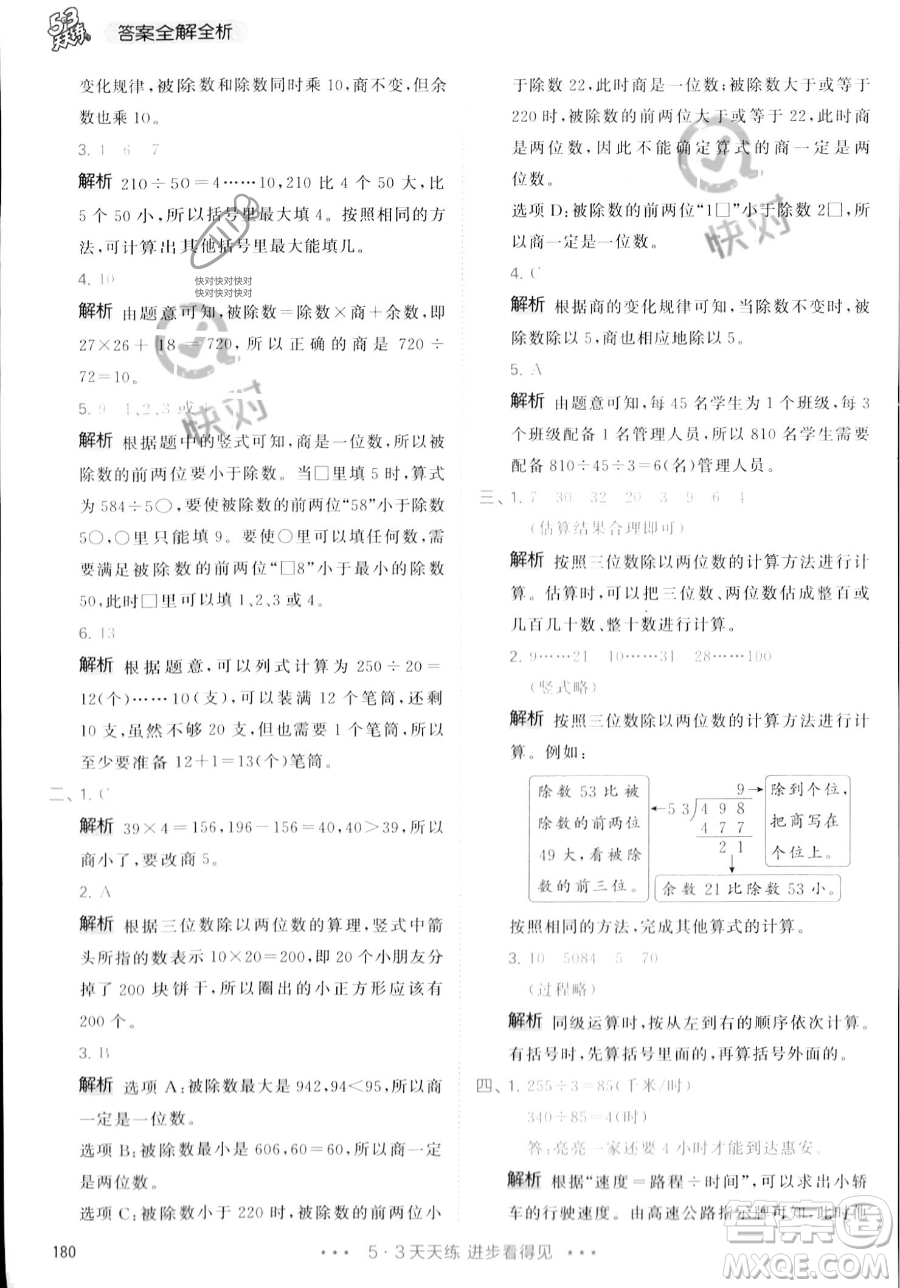 53
天天练
答案全解全析
变化规律，被除数和除数同时乘 10，商不变，余
数也乘 10。
3. 4 6 7
解析 210÷50=4……10，210 比 4 个 50 大，比
5 个 50 小，所以括号里最大填 4。按照相同的方
法，可计算出其他括号里最大能填几。
4. 10
解析 由题意可知，被除数=除数×商+余数，即
27×26+18=720，所以正确的商是 720÷
72=10。
5. 9 1、2、3 或
解析 根据题中的竖式可知，商是一位数，所以被
除数的前两位要小于除数。当□里填 5 时，算式
为 584÷5○，要使被除数的前两位“58”小于除数
5○，○里只能填 9。要使○里可以填任何数，需
要满足被除数的前两位“□8”小于最小的除数
50，此时□里可以填 1、2、3 或 4。
6. 13
解析 根据题意，可以列式计算为 250÷20=
12(个)……10(支)，可以装满 12 个笔筒，还剩
10 支，虽然不够 20 支，但也需要 1 个笔筒，所以
至少要准备 12+1=13(个)笔筒。
二、1. C
解析 39×4=156，196-156=40，40>39，所以
商小了，要改商 5。
2. A
解析 根据三位数除以两位数的算理，竖式中箭
头所指的数表示 10×20=200，即 20 个小朋友分
掉了 200 块饼干，所以圈出的小正方形应该有
200 个。
3. B
解析 选项 A：被除数最大是 942，94<95，所以商
一定是一位数。
选项 B：被除数最小是 606，60=60，所以商一定
是两位数。
选项 C：被除数小于 220 时，被除数的前两位小
于除数 22，此时商是一位数；被除数大于或等于
220 时，被除数的前两位大于或等于 22，此时商
是两位数。因此，不能确定算式的商一定是两
位数。
选项 D：被除数的前两位“1□”小于除数 2□，所
以商一定是一位数。
4. C
解析 根据商的变化规律可知，当除数不变时，被
除数除以 5，商也相应地除以 5。
5. A
解析 由题意可知，每 45 名学生为 1 个班级，每 3
个班级配备 1 名管理人员，所以 810 名学生需要
配备 810÷45÷3=6(名)管理人员。
三、1. 7 30 32 20 3 9 6 4
(估算结果合理即可)
解析 按照三位数除以两位数的计算方法进行计
算。估算时，可以把三位数、两位数估成整百或
几百几十数、整十数进行计算。
2. 9……21 10……31 28……100
(竖式略)
解析 按照三位数除以两位数的计算方法进行计
算。例如：
除数 53 比被
除数的前两位
49 大，看被除
数的前三位。
9
53)498
477
21
除到个位，
把商写在
个位上。
余数 21 比除数 53 小。
按照相同的方法，完成其他算式的计算。
3. 10 5084 5 70
(过程略)
解析 同级运算时，按从左到右的顺序依次计算。
有括号时，先算括号里面的，再算括号外面的。
四、1. 255÷3=85(千米/时)
340÷85=4(时)
答：亮亮一家还要 4 小时才能到达惠安。
解析 根据“速度=路程÷时间”，可以求出小轿
车的行驶速度。由高速公路指示牌可知，从其他
180
5·3 天天练 进步看得见
快对
快对快对快对
快对快对快对
快对
答案圈